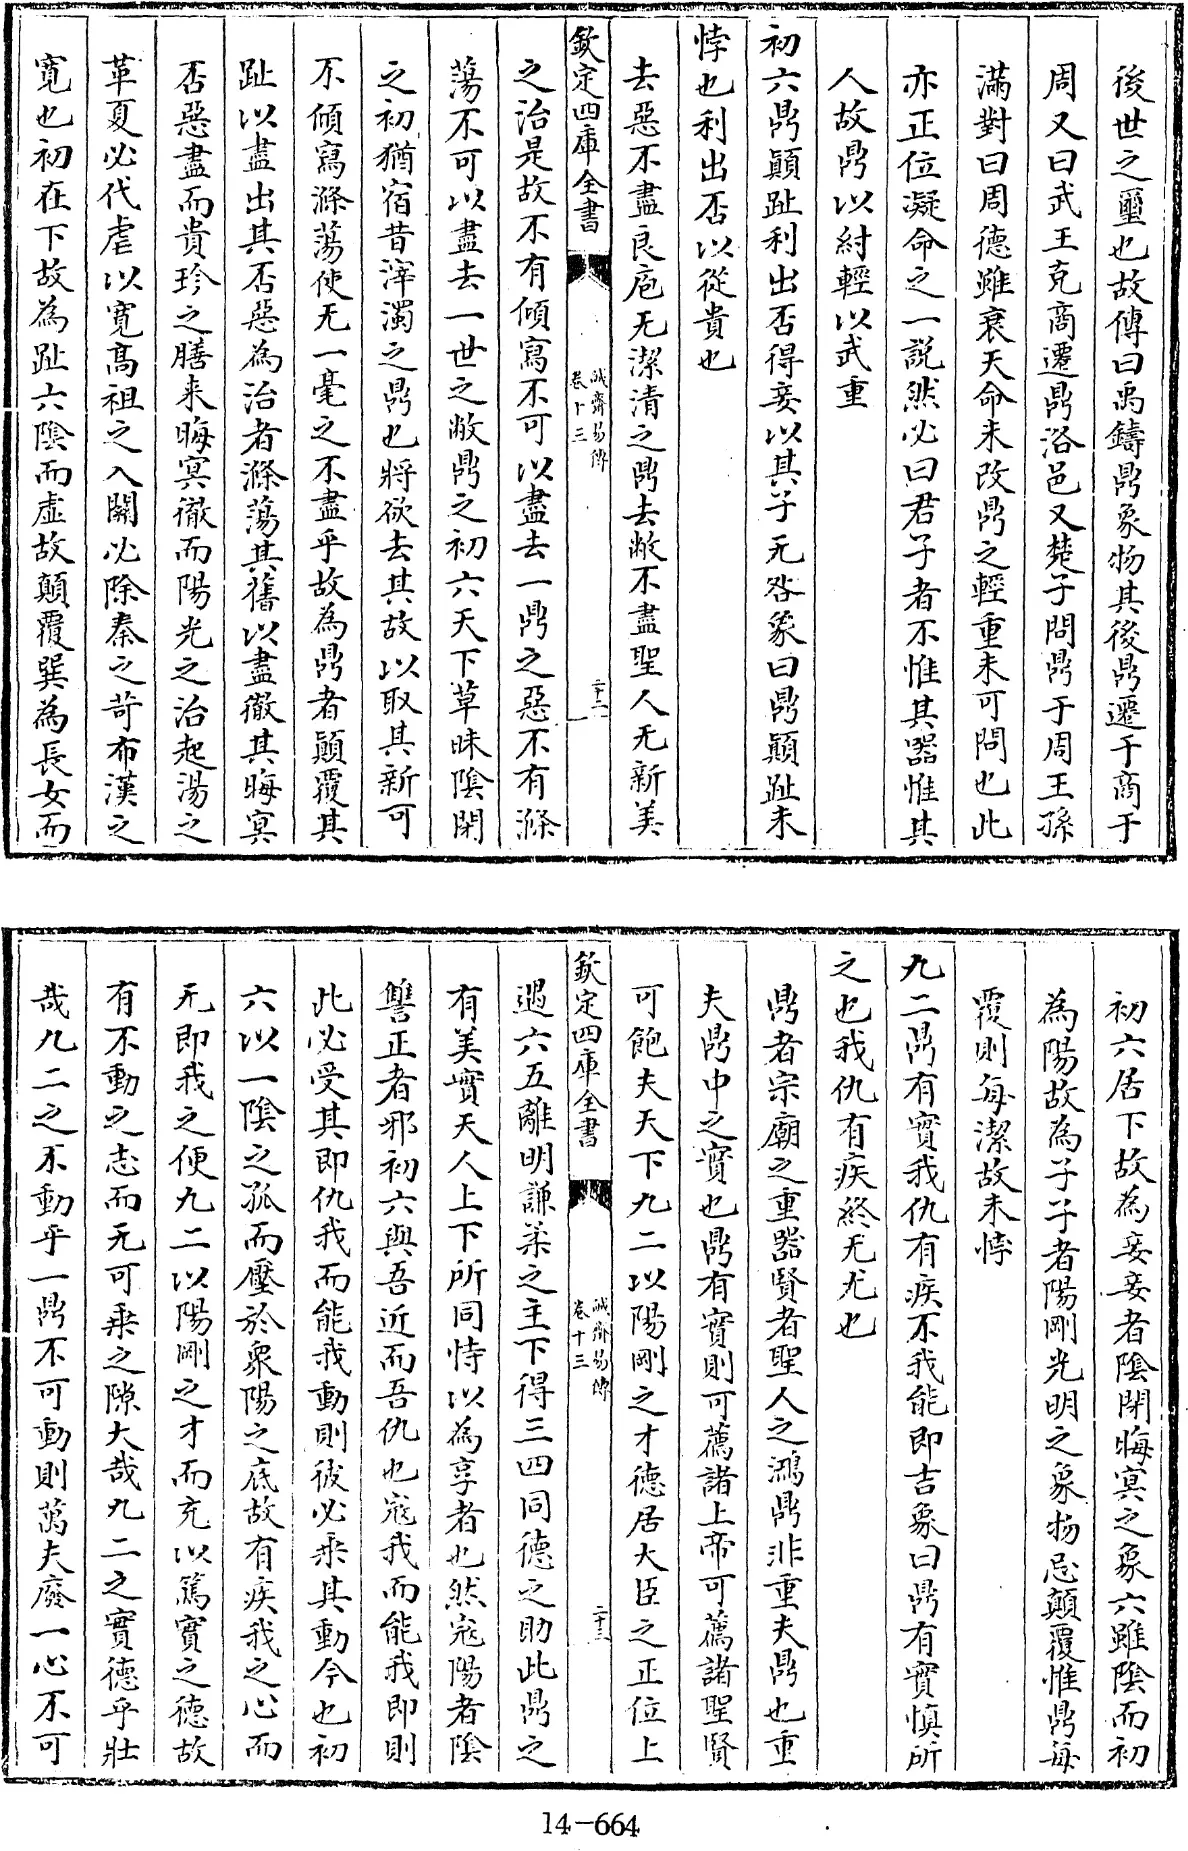 後世之璽也故傳曰禹鑄鼎象物其後鼎遷于商于
周又曰武王克商遷鼎洛邑又楚子問鼎于周王孫
滿對曰周德雖衰天命未改鼎之輕重未可問也此
亦正位凝命之一説然必曰君子者不惟其器惟其
人故鼎以紂輕以武重
初六鼎顛趾利出否得妾以其子无咎象曰鼎顛趾未
悖也利出否以從貴也
去惡不盡良庖无潔清之鼎去敝不盡聖人无新美
欽定四庫全書
誠齋易傳
卷十三
二十二
之治是故不有傾寫不可以盡去一鼎之惡不有滌
蕩不可以盡去一世之敝鼎之初六天下草昧陰閉
之初猶宿昔滓濁之鼎也將欲去其故以取其新可
不傾寫滌蕩使无一毫之不盡乎故為鼎者顛覆其
趾以盡出其否惡為治者滌蕩其舊以盡徹其晦冥
否惡盡而貴珍之膳来晦冥徹而陽光之治起湯之
革夏必代虐以寛髙祖之入關必除秦之苛布漢之
寛也初在下故為趾六陰而虛故顛覆巽為長女而
初六居下故為妾妾者陰閉晦冥之象六雖陰而初
為陽故為子子者陽剛光明之象物忌顛覆惟鼎每
覆則每潔故未悖
九二鼎有實我仇有疾不我能即吉象曰鼎有實慎所
之也我仇有疾終无尤也
鼎者宗廟之重器賢者聖人之鴻鼎非重夫鼎也重
夫鼎中之實也鼎有實則可薦諸上帝可薦諸聖賢
可飽夫天下九二以陽剛之才德居大臣之正位上
欽定四庫全書
誠齋易傳
卷十三
二十三
遇六五離明謙柔之主下得三四同德之助此鼎之
有美實天人上下所同恃以為享者也然寇陽者陰
讐正者邪初六與吾近而吾仇也寇我而能我即則
此必受其即仇我而能我動則彼必乘其動今也初
六以一陰之孤而壓於衆陽之底故有疾我之心而
无即我之便九二以陽剛之才而充以篤實之德故
有不動之志而无可乘之隙大哉九二之實德乎壯
哉九二之不動乎一鼎不可動則萬夫廢一心不可
14-664